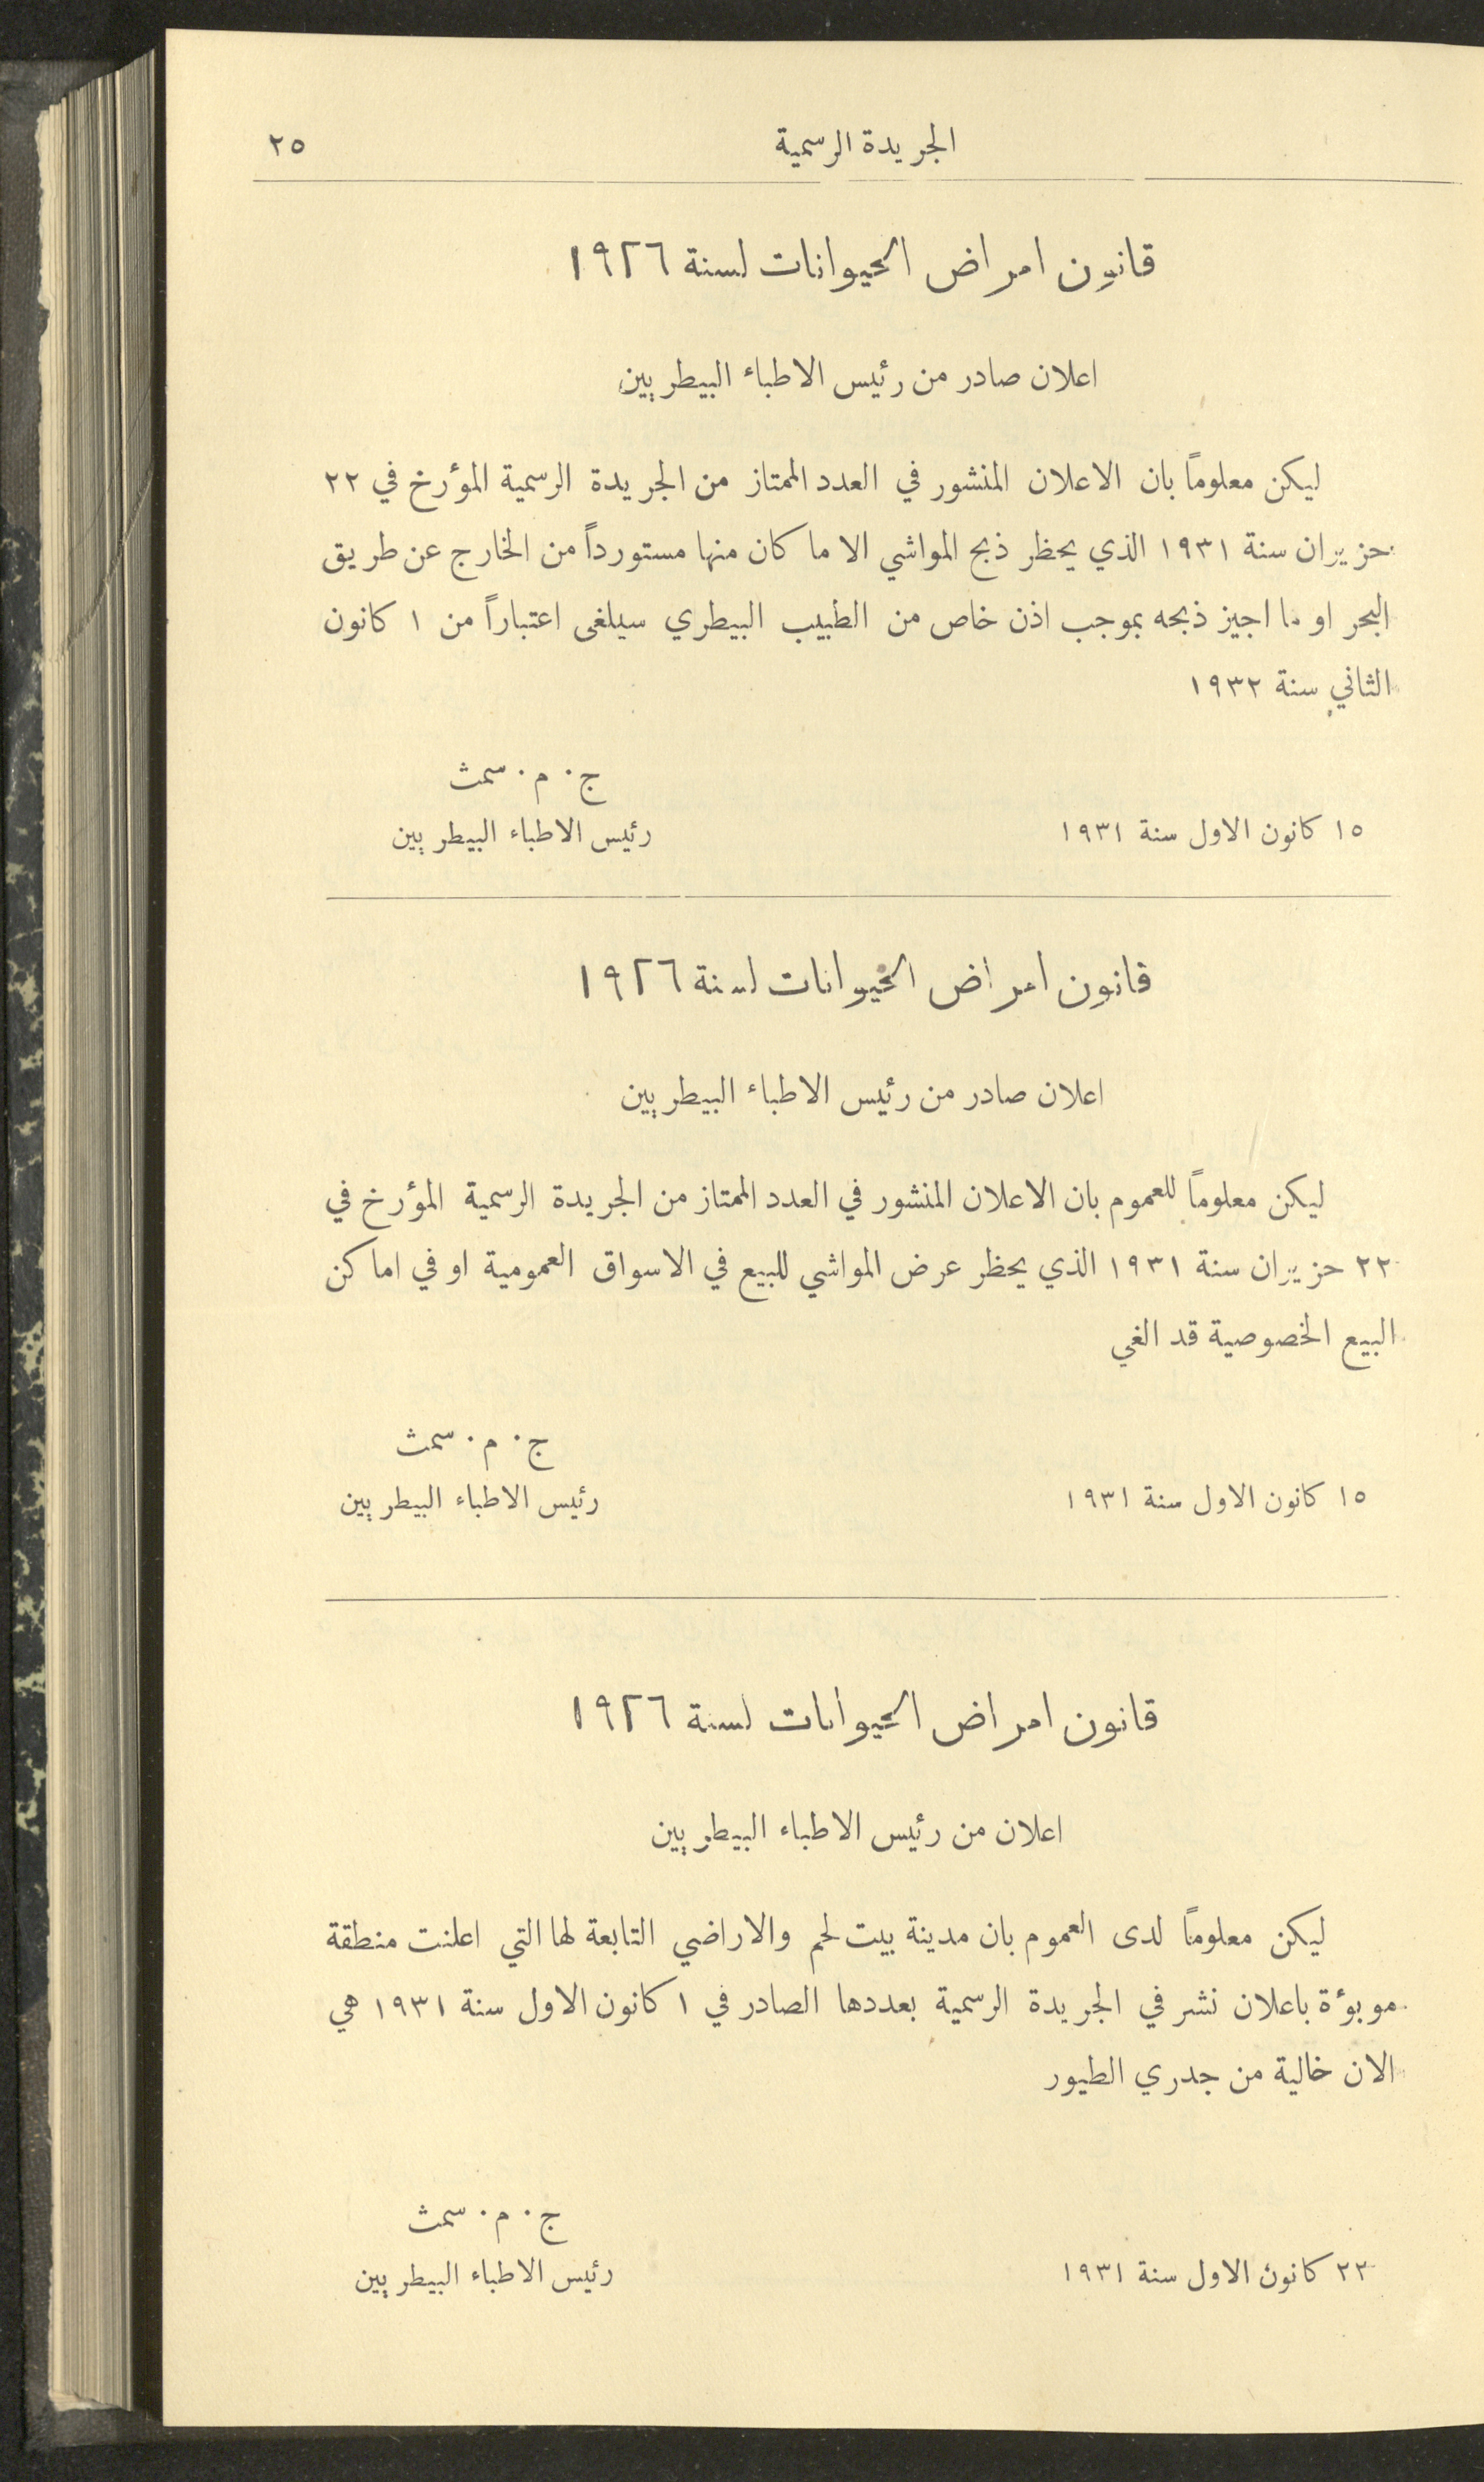 الجريدة الرسمية ٢٥
قانون امراض الحيوانات لسنة ١٩٢٦
اعلان صادر من رئيس الاطباء البيطريين
ليكن معلوماً بان الاعلان المنشور في العدد الممتاز من الجريدة الرسمية المؤرخ في ٢٢
حزيران سنة ١٩٣١ الذي يحظر ذبح المواشي الا ما كان منها مستورداً من الخارج عن طريق
البحر او ما اجيز ذبحه بموجب اذن خاص من الطبيب البيطري سيلغى اعتباراً من ١ كانون
الثاني سنة ١٩٣٢
ج. م. سمث
١٥ كانون الاول سنة ١٩٣١ رئيس الاطباء البيطريين
قانون امراض الحيوانات لسنة ١٩٢٦
اعلان صادر من رئيس الاطباء البيطريين
ليكن معلوماً للعموم بان الاعلان المنشور في العدد الممتاز من الجريدة الرسمية المؤرخ في
٢٢ حزيران سنة ١٩٣١ الذي يحظر عرض المواشي للبيع في الاسواق العمومية او في اماكن
البيع الخصوصية قد الغي
ج. م. سمث
١٥ كانون الاول سنة ١٩٣١ رئيس الاطباء البيطريين
قانون امراض الحيوانات لسنة ١٩٢٦
اعلان من رئيس الاطباء البيطريين
ليكن معلوماً لدى العموم بان مدينة بيت لحم والاراضي التابعة لها التي اعلنت منطقة
موبوؤة باعلان نشر في الجريدة الرسمية بعددها الصادر في ١ كانون الاول سنة ١٩٣١ هي
الان خالية من جدري الطيور
ج. م. سمث
٢٢ كانون الاول سنة ١٩٣١ رئيس الاطباء البيطريين